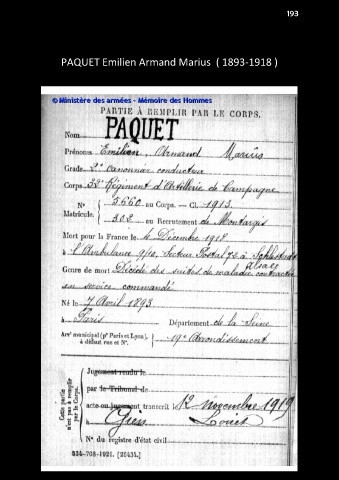 193
PAQUET Emilien Armand Marius ( 1893-1918 )
© Ministère des armées - Mémoire des Hommes
PARTIE À REMPLIR PAR LE CORPS.
Nom PAQUET
Prénoms Emilien, Armand Marius
Grade 2e canonnier conducteur
Corps 32e Régiment d'Artillerie de Campagne
N° 3660 au Corps. — Cl. 1913.
Matricule. 302 au Recrutement de Montargis
Mort pour la France le 4 Décembre 1918
à l'Ambulance 9/10, Secteur Postal 72 à Schlestadt
Alsace
Genre de mort Décédé des suites de maladie contractée
en service commandé
Né le 7 Avril 1893
à Paris Département de la Seine
Arrt municipal (pr Paris et Lyon), à défaut rue et N°. 19e Arrondissement
Cette partie n'est pas à remplir par le Corps.
Jugement rendu le
par le Tribunal de
acte ou jugement transcrit le 12 novembre 1919
à Gien Loiret
N° du registre d'état civil
534-708-1921. [26434.]